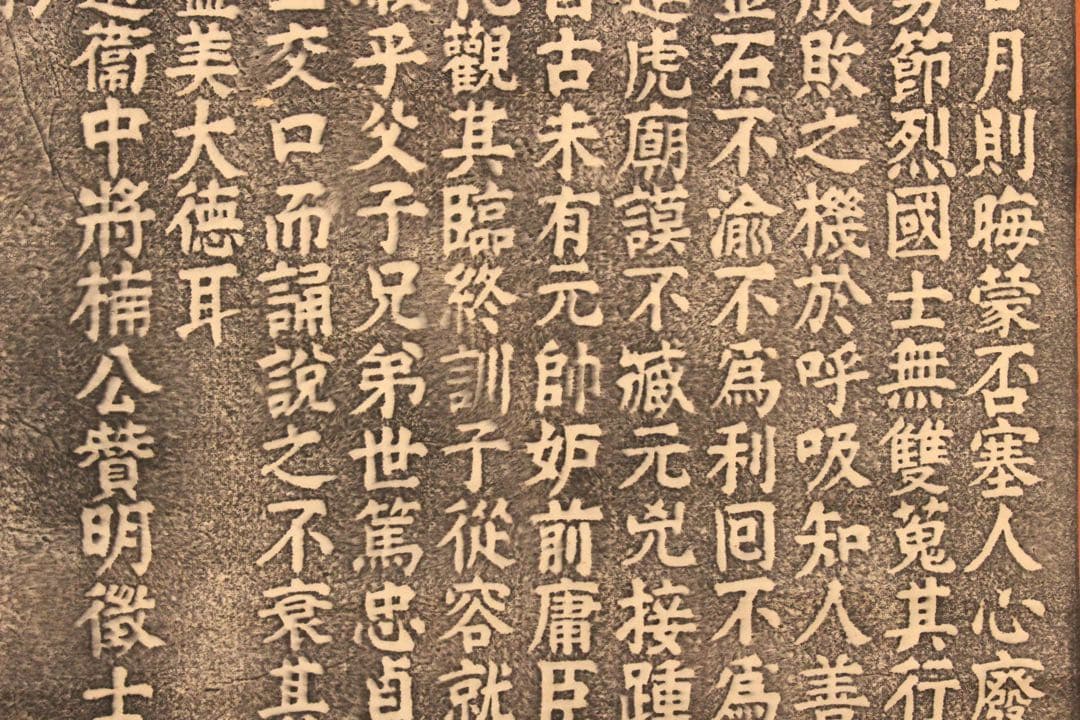 日月則晦蒙否塞人心廢
勇節烈國士無雙蒐其行
成敗之機於呼吸知人善
金石不渝不爲利回不爲
進虎廟謨不臧元兇接踵
自古未有元帥妒前庸臣
佗觀其臨終訓子從容就
暇乎父子兄弟世篤忠貞
士交口而誦說之不衰其
盛美大德耳
近衞中將楠公贊明徵士